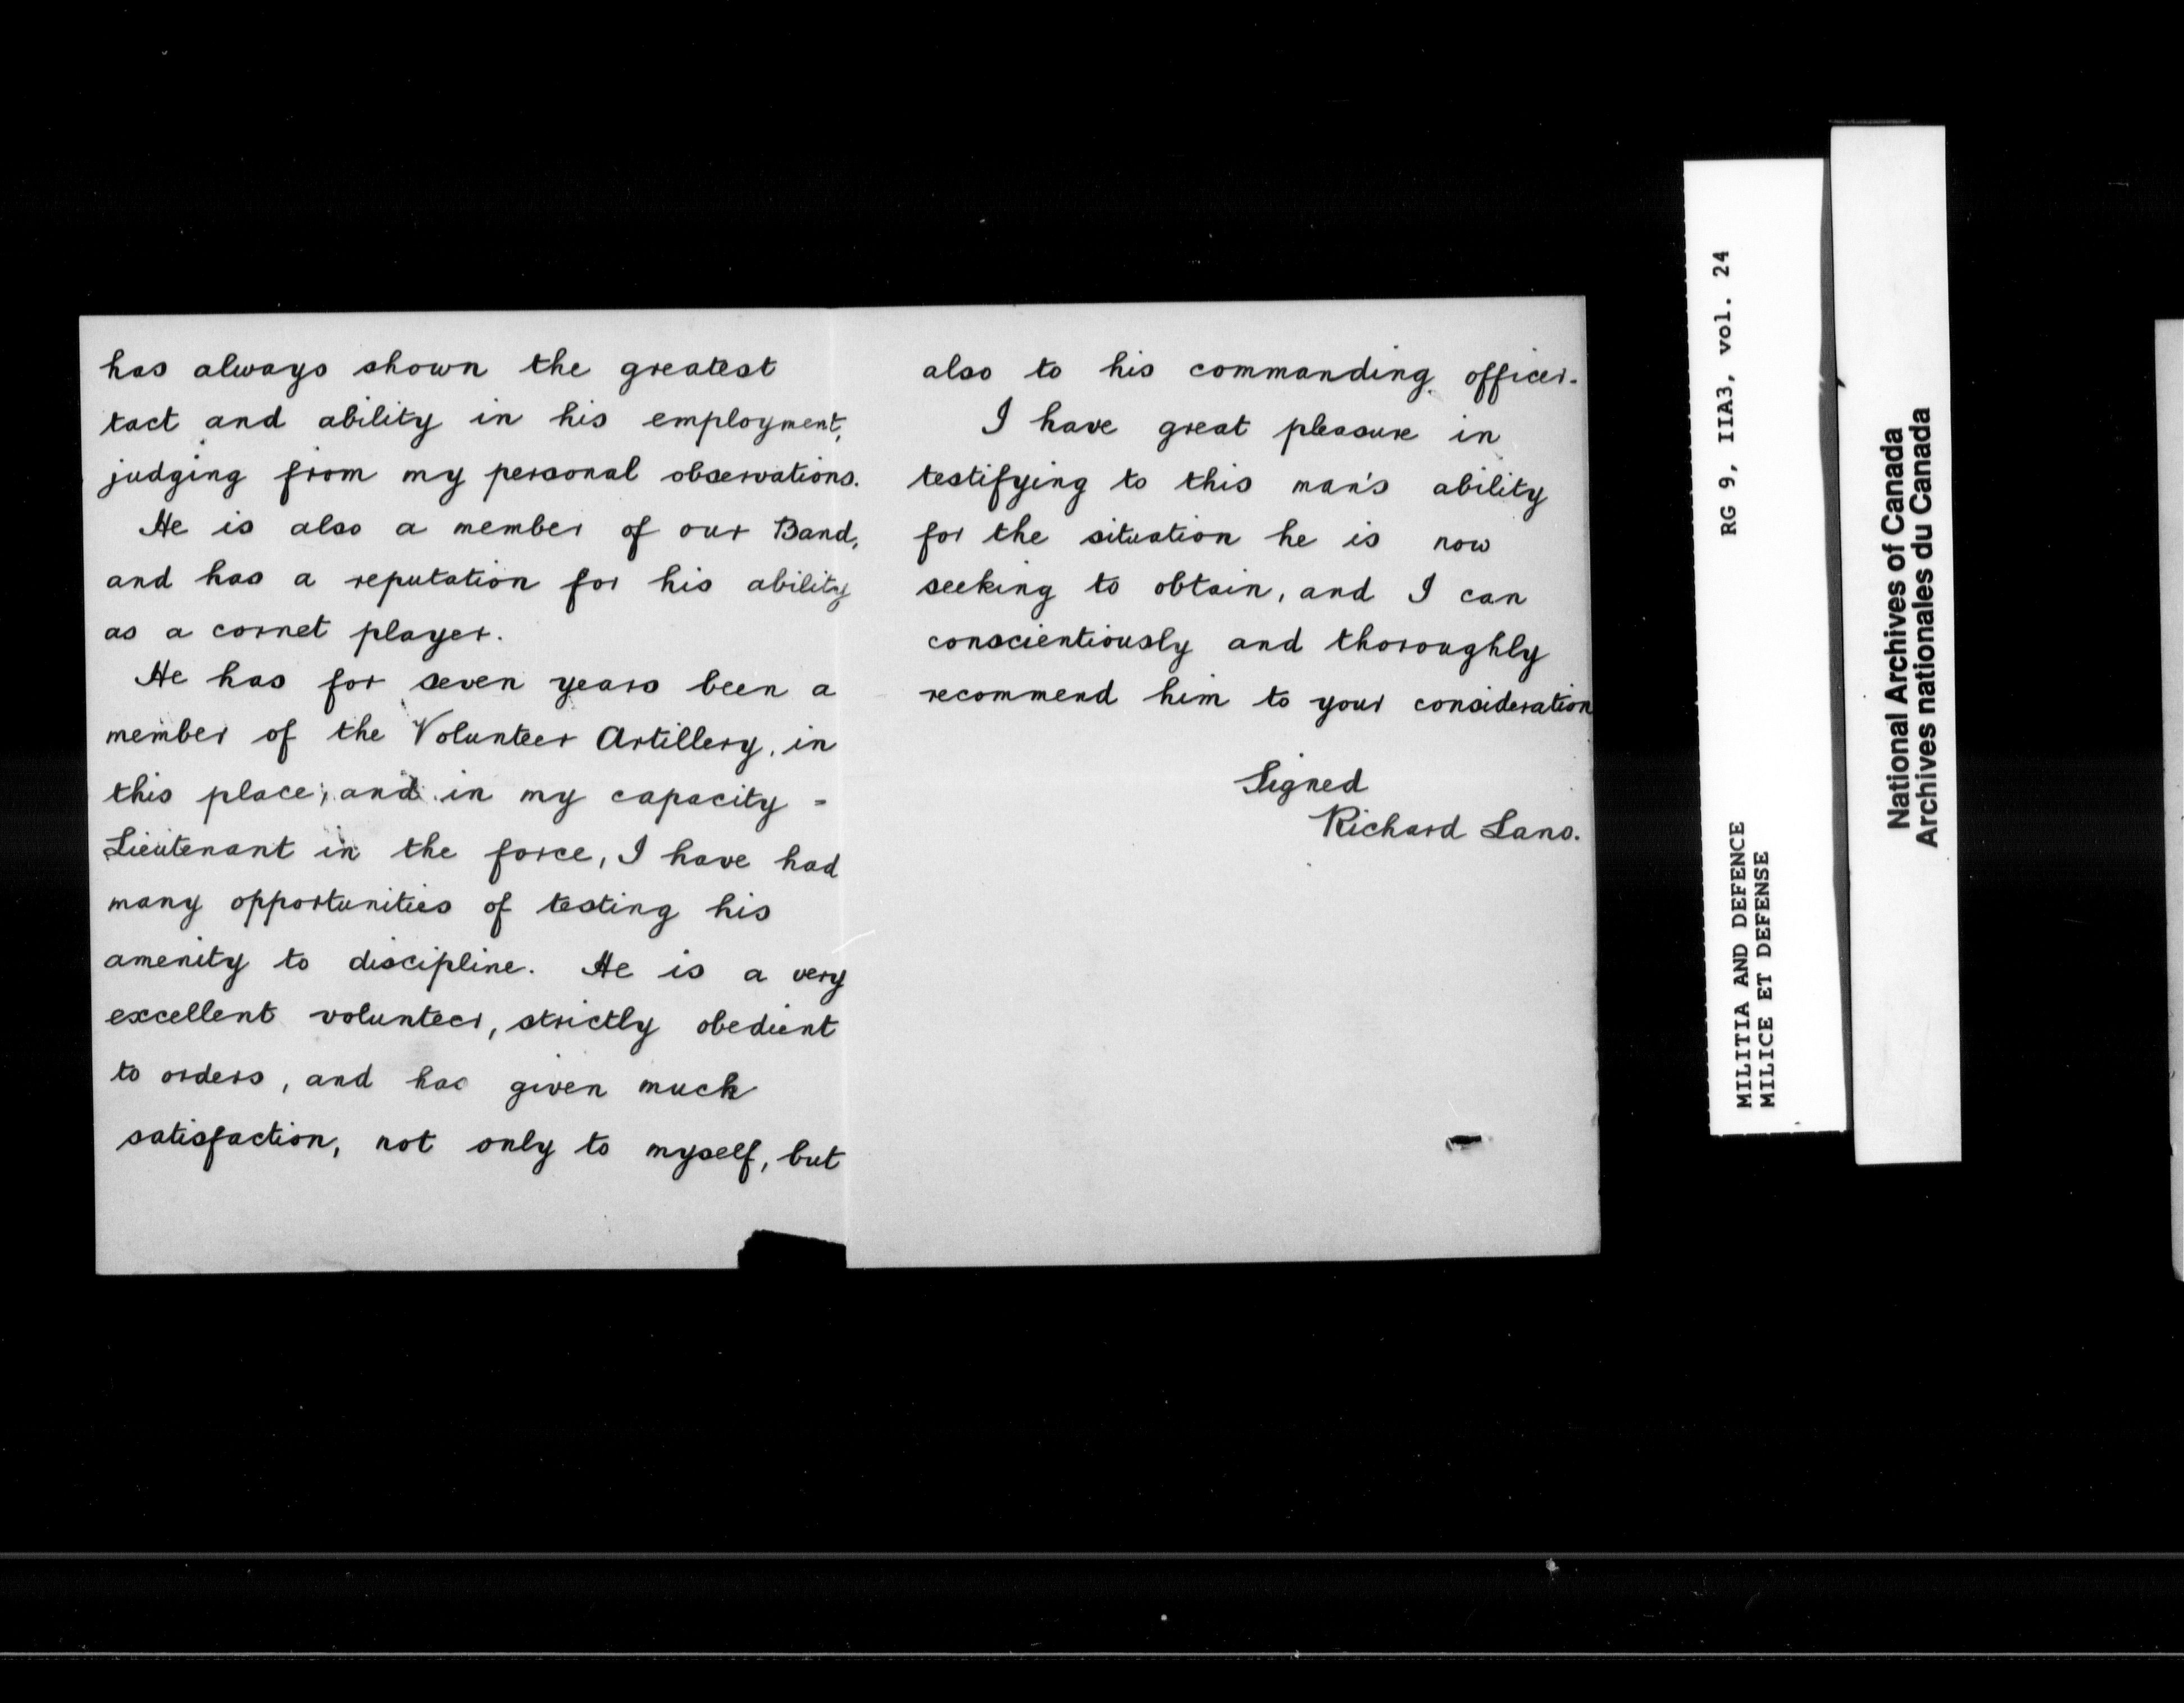 has always shown the greatest
tact and ability in his employment,
judging from my personal observations.
He is also a member of our Band,
and has a reputation for his ability
as a cornet player.
He has for seven years been a
member of the Volunteer Artillery, in
this place; and in my capacity =
Lieutenant in the force, I have had
many opportunities of testing his
amenity to discipline. He is a very
excellent volunteer, strictly obedient
to orders, and has given much
satisfaction, not only to myself, but
also to his commanding officer.
I have great pleasure in
testifying to this man's ability
for the situation he is now
seeking to obtain, and I can
conscientiously and thoroughly
recommend him to your consideration
Signed
Richard Lano.
RG 9, IIA3, vol. 24
MILITIA AND DEFENCE
MILICE ET DEFENSE
National Archives of Canada
Archives nationales du Canada